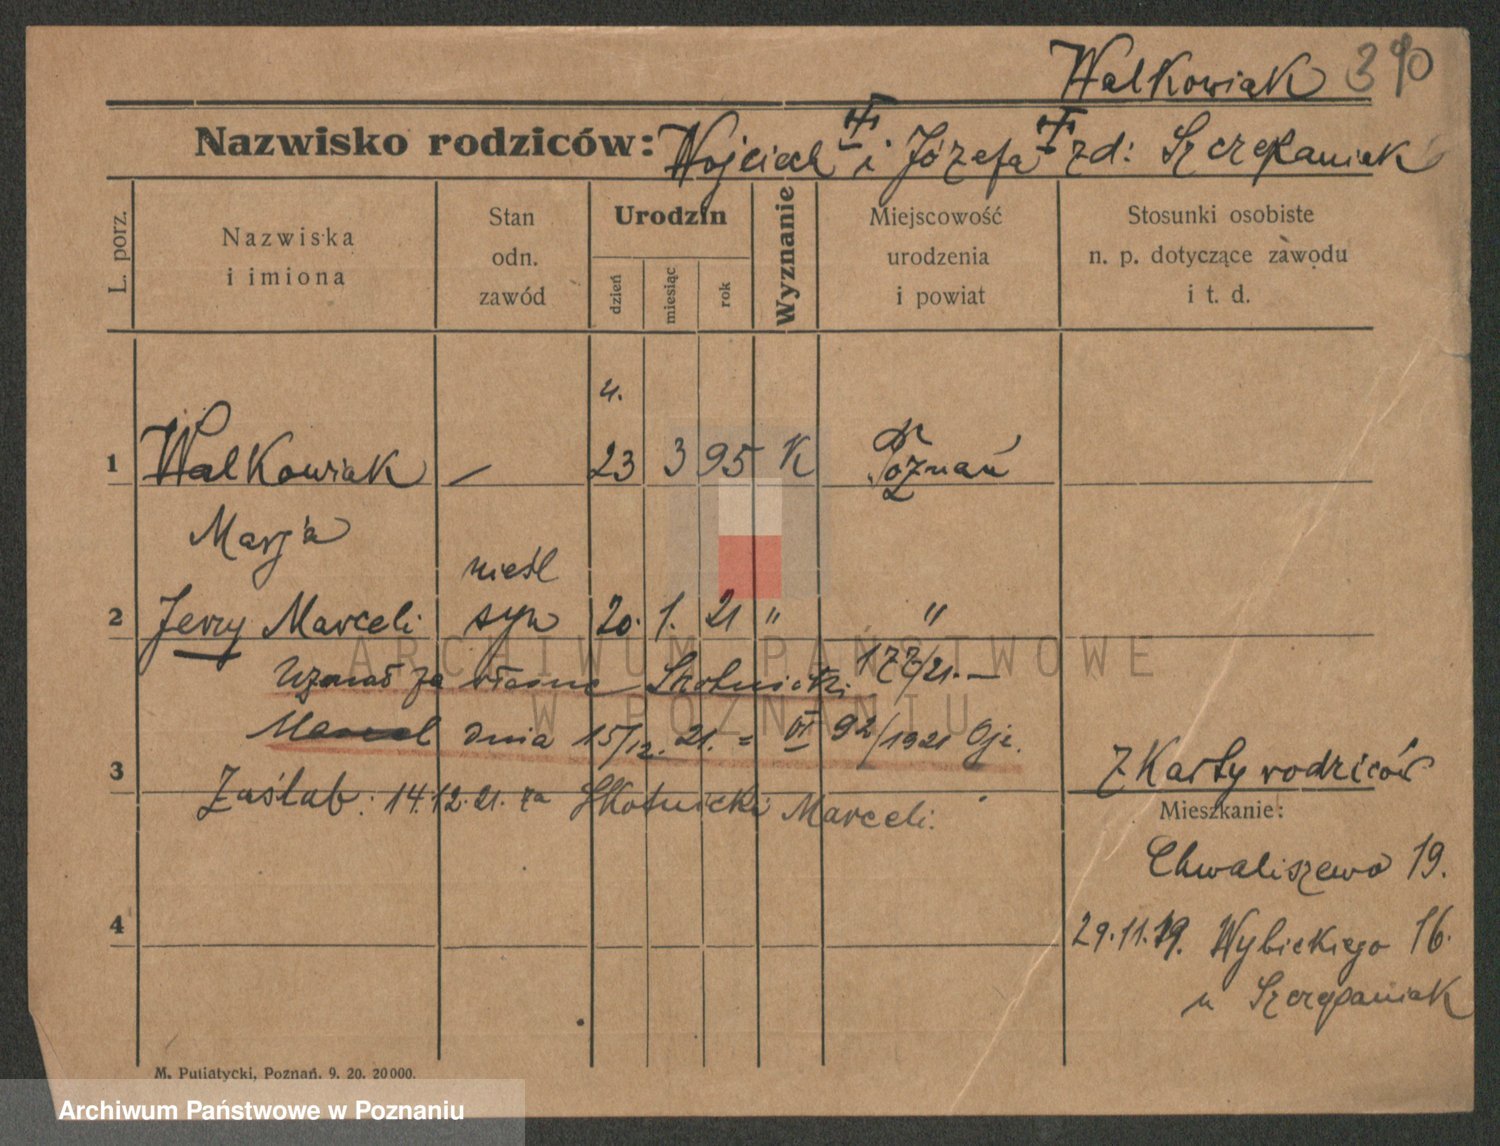 Walkowiak 390
Nazwisko rodziców: Wojciech i Józefa zd: Szczepaniak
L. porz.
Nazwiska
i imiona
Stan
odn.
zawód
Urodzin
dzień
miesiąc
rok
Wyznanie
Miejscowość
urodzenia
i powiat
Stosunki osobiste
n. p. dotyczące zawodu
i t. d.
u.
1 Walkowiak — 23 3 95 K Poznań
Marja
nieśl
2 Jerzy Marceli syn 20. 1. 21 " "
Uznał za własne Skotnicki 177/21.—
Marcel dnia 15/12. 21. = VI 92/1921 Oje.
3
Zaślub. 14.12.21. za Skotnicki Marceli.
Z Karty rodziców
Mieszkanie:
Chwaliszewo 19.
4
29.11.19. Wybickiego 16.
u Szczepaniak
M. Putiatycki, Poznań. 9. 20. 20000.
ARCHIWUM PAŃSTWOWE
W POZNANIU
Archiwum Państwowe w Poznaniu